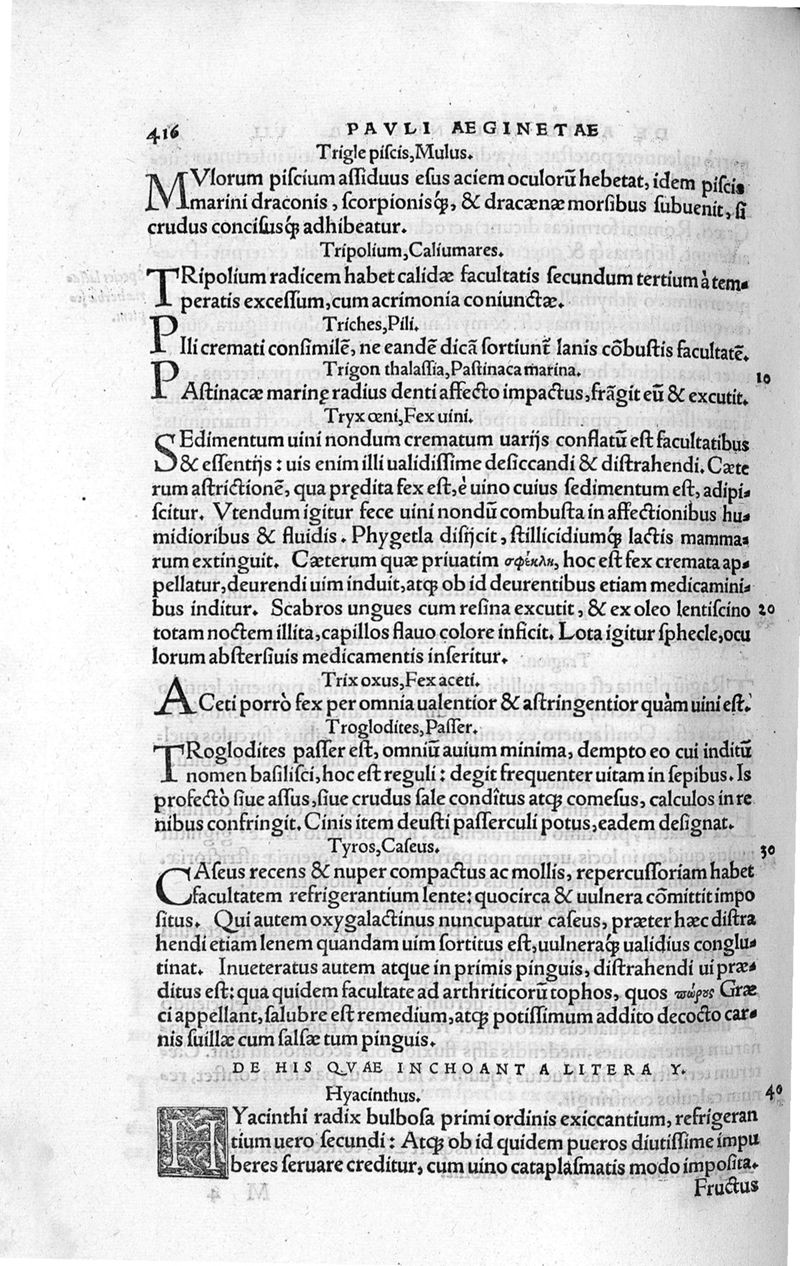 416 PAVLI AEGINETAE
Trigle piſcis, Mulus.
MVlorum piſcium aſſiduus eſus aciem oculorũ hebetat, idem piſcis
marini draconis, ſcorpionisq́;, & dracænæ morſibus ſubuenit, ſi
crudus conciſusq́; adhibeatur.
Tripolium, Caliumares.
TRipolium radicem habet calidæ facultatis ſecundum tertium à tem-
peratis exceſſum, cum acrimonia coniunctæ.
Triches, Pili.
PIli cremati conſimilẽ, ne eandẽ dicã ſortiunt̃ lanis cõbuſtis facultatẽ.
Trigon thalaſſia, Paſtinaca marina.
PAſtinacæ marinę radius denti affecto impactus, frãgit eũ & excutit. 10
Tryx œni, Fex uini.
SEdimentum uini nondum crematum uarijs conflatũ eſt facultatibus
& eſſentijs: uis enim illi ualidiſſime deſiccandi & diſtrahendi. Cæte
rum aſtrictionẽ, qua prędita fex eſt, è uino cuius ſedimentum eſt, adipi-
ſcitur. Vtendum igitur fece uini nondũ combuſta in affectionibus hu-
midioribus & fluidis. Phygetla diſijcit, ſtillicidiumq́; lactis mamma-
rum extinguit. Cæterum quæ priuatim σφέκλη, hoc eſt fex cremata ap-
pellatur, deurendi uim induit, atq; ob id deurentibus etiam medicamini-
bus inditur. Scabros ungues cum reſina excutit, & ex oleo lentiſcino 20
totam noctem illita, capillos flauo colore inficit. Lota igitur ſphecle, ocu
lorum abſterſiuis medicamentis inſeritur.
Trix oxus, Fex aceti.
ACeti porrò fex per omnia ualentior & aſtringentior quàm uini eſt.
Troglodites, Paſſer.
TRoglodites paſſer eſt, omniũ auium minima, dempto eo cui inditũ
nomen baſiliſci, hoc eſt reguli: degit frequenter uitam in ſepibus. Is
profectò ſiue aſſus, ſiue crudus ſale condîtus atq; comeſus, calculos in re
nibus confringit. Cinis item deuſti paſſerculi potus, eadem deſignat.
Tyros, Caſeus. 30
CAſeus recens & nuper compactus ac mollis, repercuſſoriam habet
facultatem refrigerantium lente: quocirca & uulnera cõmittit impo
ſitus. Qui autem oxygalactinus nuncupatur caſeus, præter hæc diſtra
hendi etiam lenem quandam uim ſortitus eſt, uulneraq́; ualidius conglu-
tinat. Inueteratus autem atque in primis pinguis, diſtrahendi ui præ-
ditus eſt: qua quidem facultate ad arthriticorũ tophos, quos πώρους Græ
ci appellant, ſalubre eſt remedium, atq; potiſſimum addito decocto car-
nis ſuillæ cum ſalſæ tum pinguis.
DE HIS QVAE INCHOANT A LITERA Y.
Hyacinthus. 40
HYacinthi radix bulboſa primi ordinis exiccantium, refrigeran
tium uero ſecundi: Atq; ob id quidem pueros diutiſſime impu
beres ſeruare creditur, cum uino cataplaſmatis modo impoſita.
Fructus